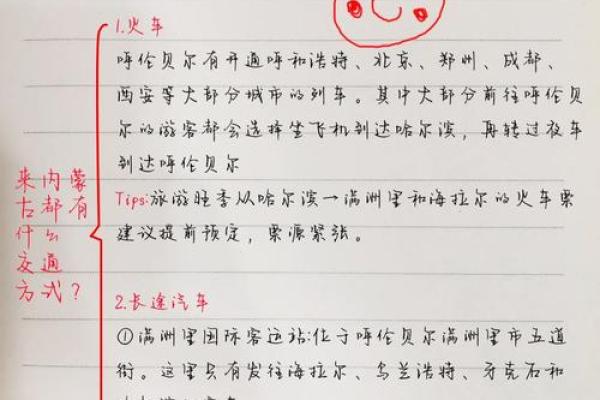 来内蒙
古都有
什么
交通
方式？
1.火车
呼伦贝尔有开通呼和浩特、北京、郑州、成都、
西安等大部分城市的列车。其中大部分前往呼伦贝
尔的游客都会选择坐飞机到达哈尔滨，再转过夜车
到达呼伦贝尔
Tips:旅游旺季从哈尔滨→满洲里和海拉尔的火车票
建议提前预定，票源紧张。
2.长途汽车
①满洲里国际客运站:位于呼伦贝尔满洲里市五道
街。这里只有发往海拉尔、乌兰浩特、牙克石和